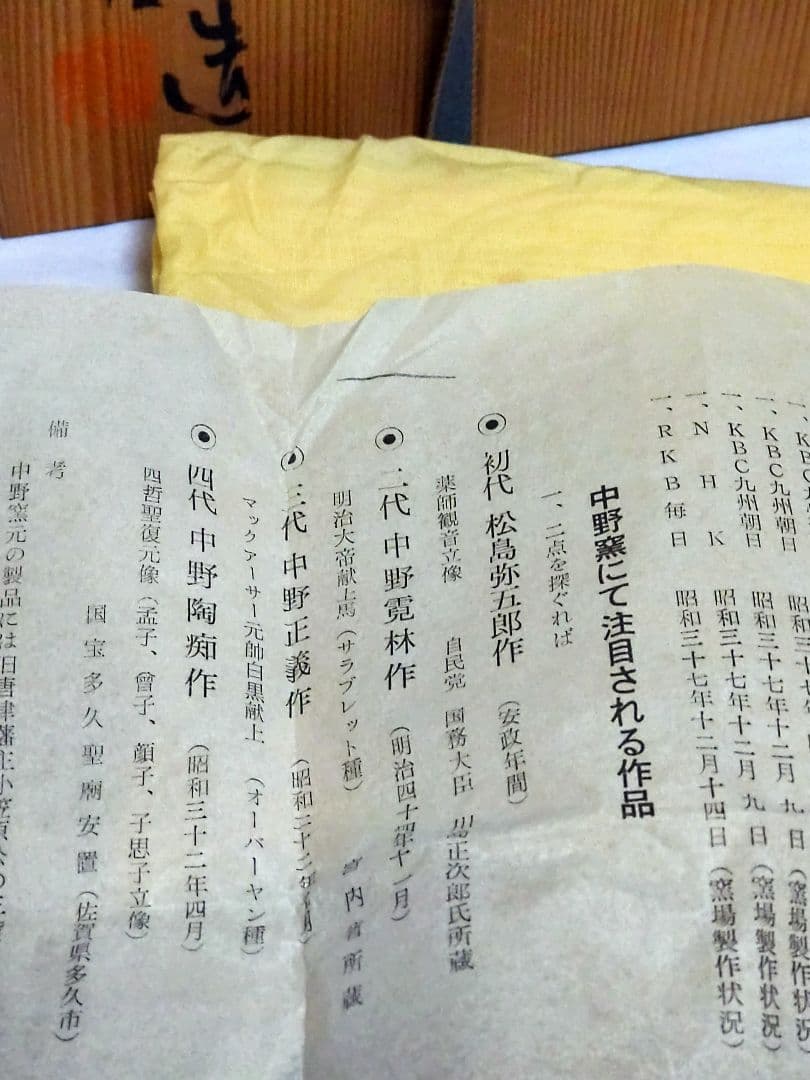 造
一、KBC九州朝日 昭和三十七年
一、KBC九州朝日 昭和三十七年十二月 九日 (窯場製作状況)
一、KBC九州朝日 昭和三十七年十二月 九日 (窯場製作状況)
一、NHK 昭和三十七年十二月十四日 (窯場製作状況)
一、RKB毎日
中野窯にて注目される作品
一、二点を探ぐれば
初代 松島弥五郎作 (安政年間)
薬師観音立像 自民党 国務大臣 川島正次郎氏所蔵
二代 中野霓林作 (明治四十四年十一月)
明治大帝献上馬(サラブレット種) 宮内省所蔵
三代 中野正義作 (昭和二十二年
マックアーサー元帥白黒献上 (オーバーヤン種)
四代 中野陶痴作 (昭和三十二年四月)
四哲聖復元像(孟子、曾子、顔子、子思子立像)
国宝多久聖廟安置(佐賀県多久市)
備考
中野窯元の製品には旧唐津藩主小笠原公の